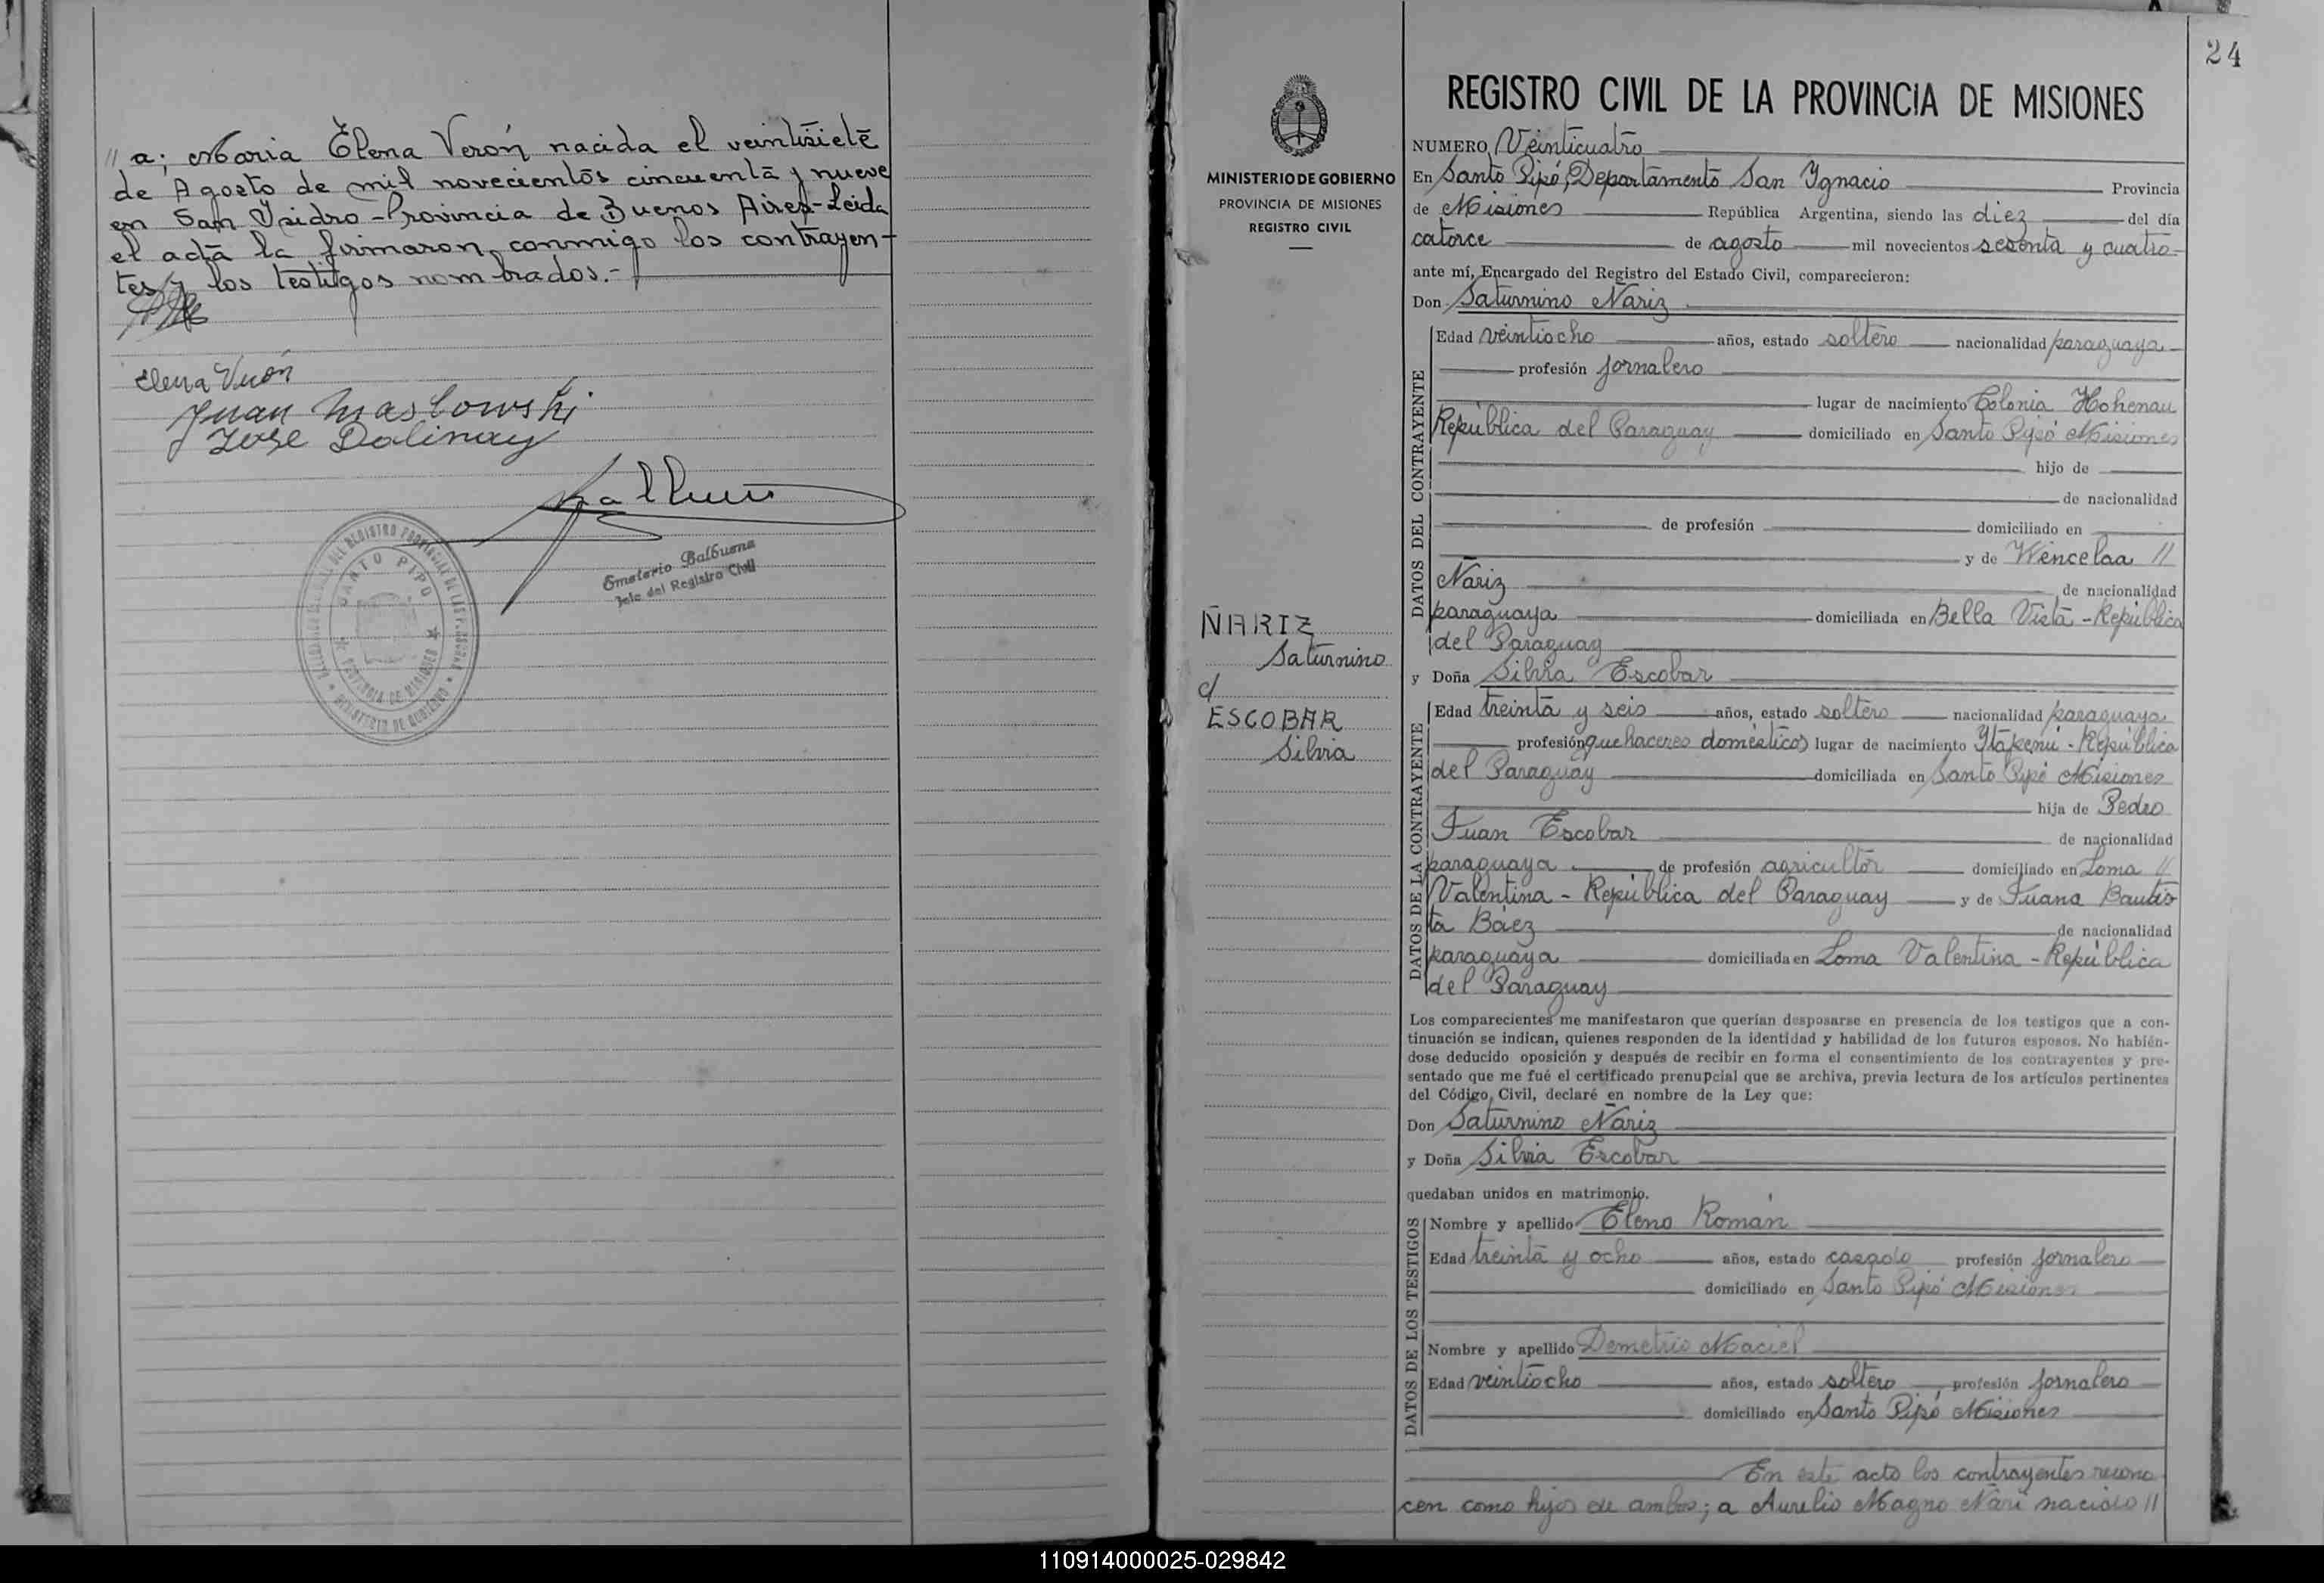 " a; Maria Elena Verón nacida el veintisiete
de Agosto de mil novecientos cincuenta y nueve
en San Ysidro - Provincia de Buenos Aires - Leida
el acta la firmaron conmigo los contrayen-
tes y los testigos nombrados.-
Elena Verón
Juan Maslowski
Jose Dalinay
Emeterio Balbuena
Jefe del Registro Civil
SANTO PIPO
PROVINCIA DE MISIONES
MINISTERIO DE GOBIERNO
24
MINISTERIO DE GOBIERNO
PROVINCIA DE MISIONES
REGISTRO CIVIL
ÑARIZ
Saturnino
c/
ESCOBAR
Silvia
REGISTRO CIVIL DE LA PROVINCIA DE MISIONES
NUMERO Veinticuatro
En Santo Pipó, Departamento San Ygnacio Provincia
de Misiones República Argentina, siendo las diez del día
catorce de agosto mil novecientos sesenta y cuatro
ante mí, Encargado del Registro del Estado Civil, comparecieron:
Don Saturnino Ñariz
DATOS DEL CONTRAYENTE
Edad veintiocho años, estado soltero nacionalidad paraguaya
profesión jornalero
lugar de nacimiento Colonia Hohenau
República del Paraguay domiciliado en Santo Pipó Misiones
hijo de
de nacionalidad
de profesión domiciliado en
y de Wencelaa //
Ñariz de nacionalidad
paraguaya domiciliada en Bella Vista - República
del Paraguay
y Doña Silvia Escobar
DATOS DE LA CONTRAYENTE
Edad treinta y seis años, estado soltero nacionalidad paraguaya
profesión quehaceres domésticos lugar de nacimiento Ytapenú - República
del Paraguay domiciliada en Santo Pipó Misiones
hija de Pedro
Juan Escobar de nacionalidad
paraguaya de profesión agricultor domiciliado en Loma //
Valentina - República del Paraguay y de Juana Bautis
ta Báez de nacionalidad
paraguaya domiciliada en Loma Valentina - República
del Paraguay
Los comparecientes me manifestaron que querían desposarse en presencia de los testigos que a con-
tinuación se indican, quienes responden de la identidad y habilidad de los futuros esposos. No habién-
dose deducido oposición y después de recibir en forma el consentimiento de los contrayentes y pre-
sentado que me fué el certificado prenupcial que se archiva, previa lectura de los artículos pertinentes
del Código Civil, declaré en nombre de la Ley que:
Don Saturnino Ñariz
y Doña Silvia Escobar
quedaban unidos en matrimonio.
DATOS DE LOS TESTIGOS
Nombre y apellido Eleno Román
Edad treinta y ocho años, estado casado profesión jornalero
domiciliado en Santo Pipó Misiones
Nombre y apellido Demetrio Maciel
Edad veintiocho años, estado soltero, profesión jornalero
domiciliado en Santo Pipó Misiones
En este acto los contrayentes recono
cen como hijos de ambos; a Aurelio Magno Ñari nacido //
110914000025-029842